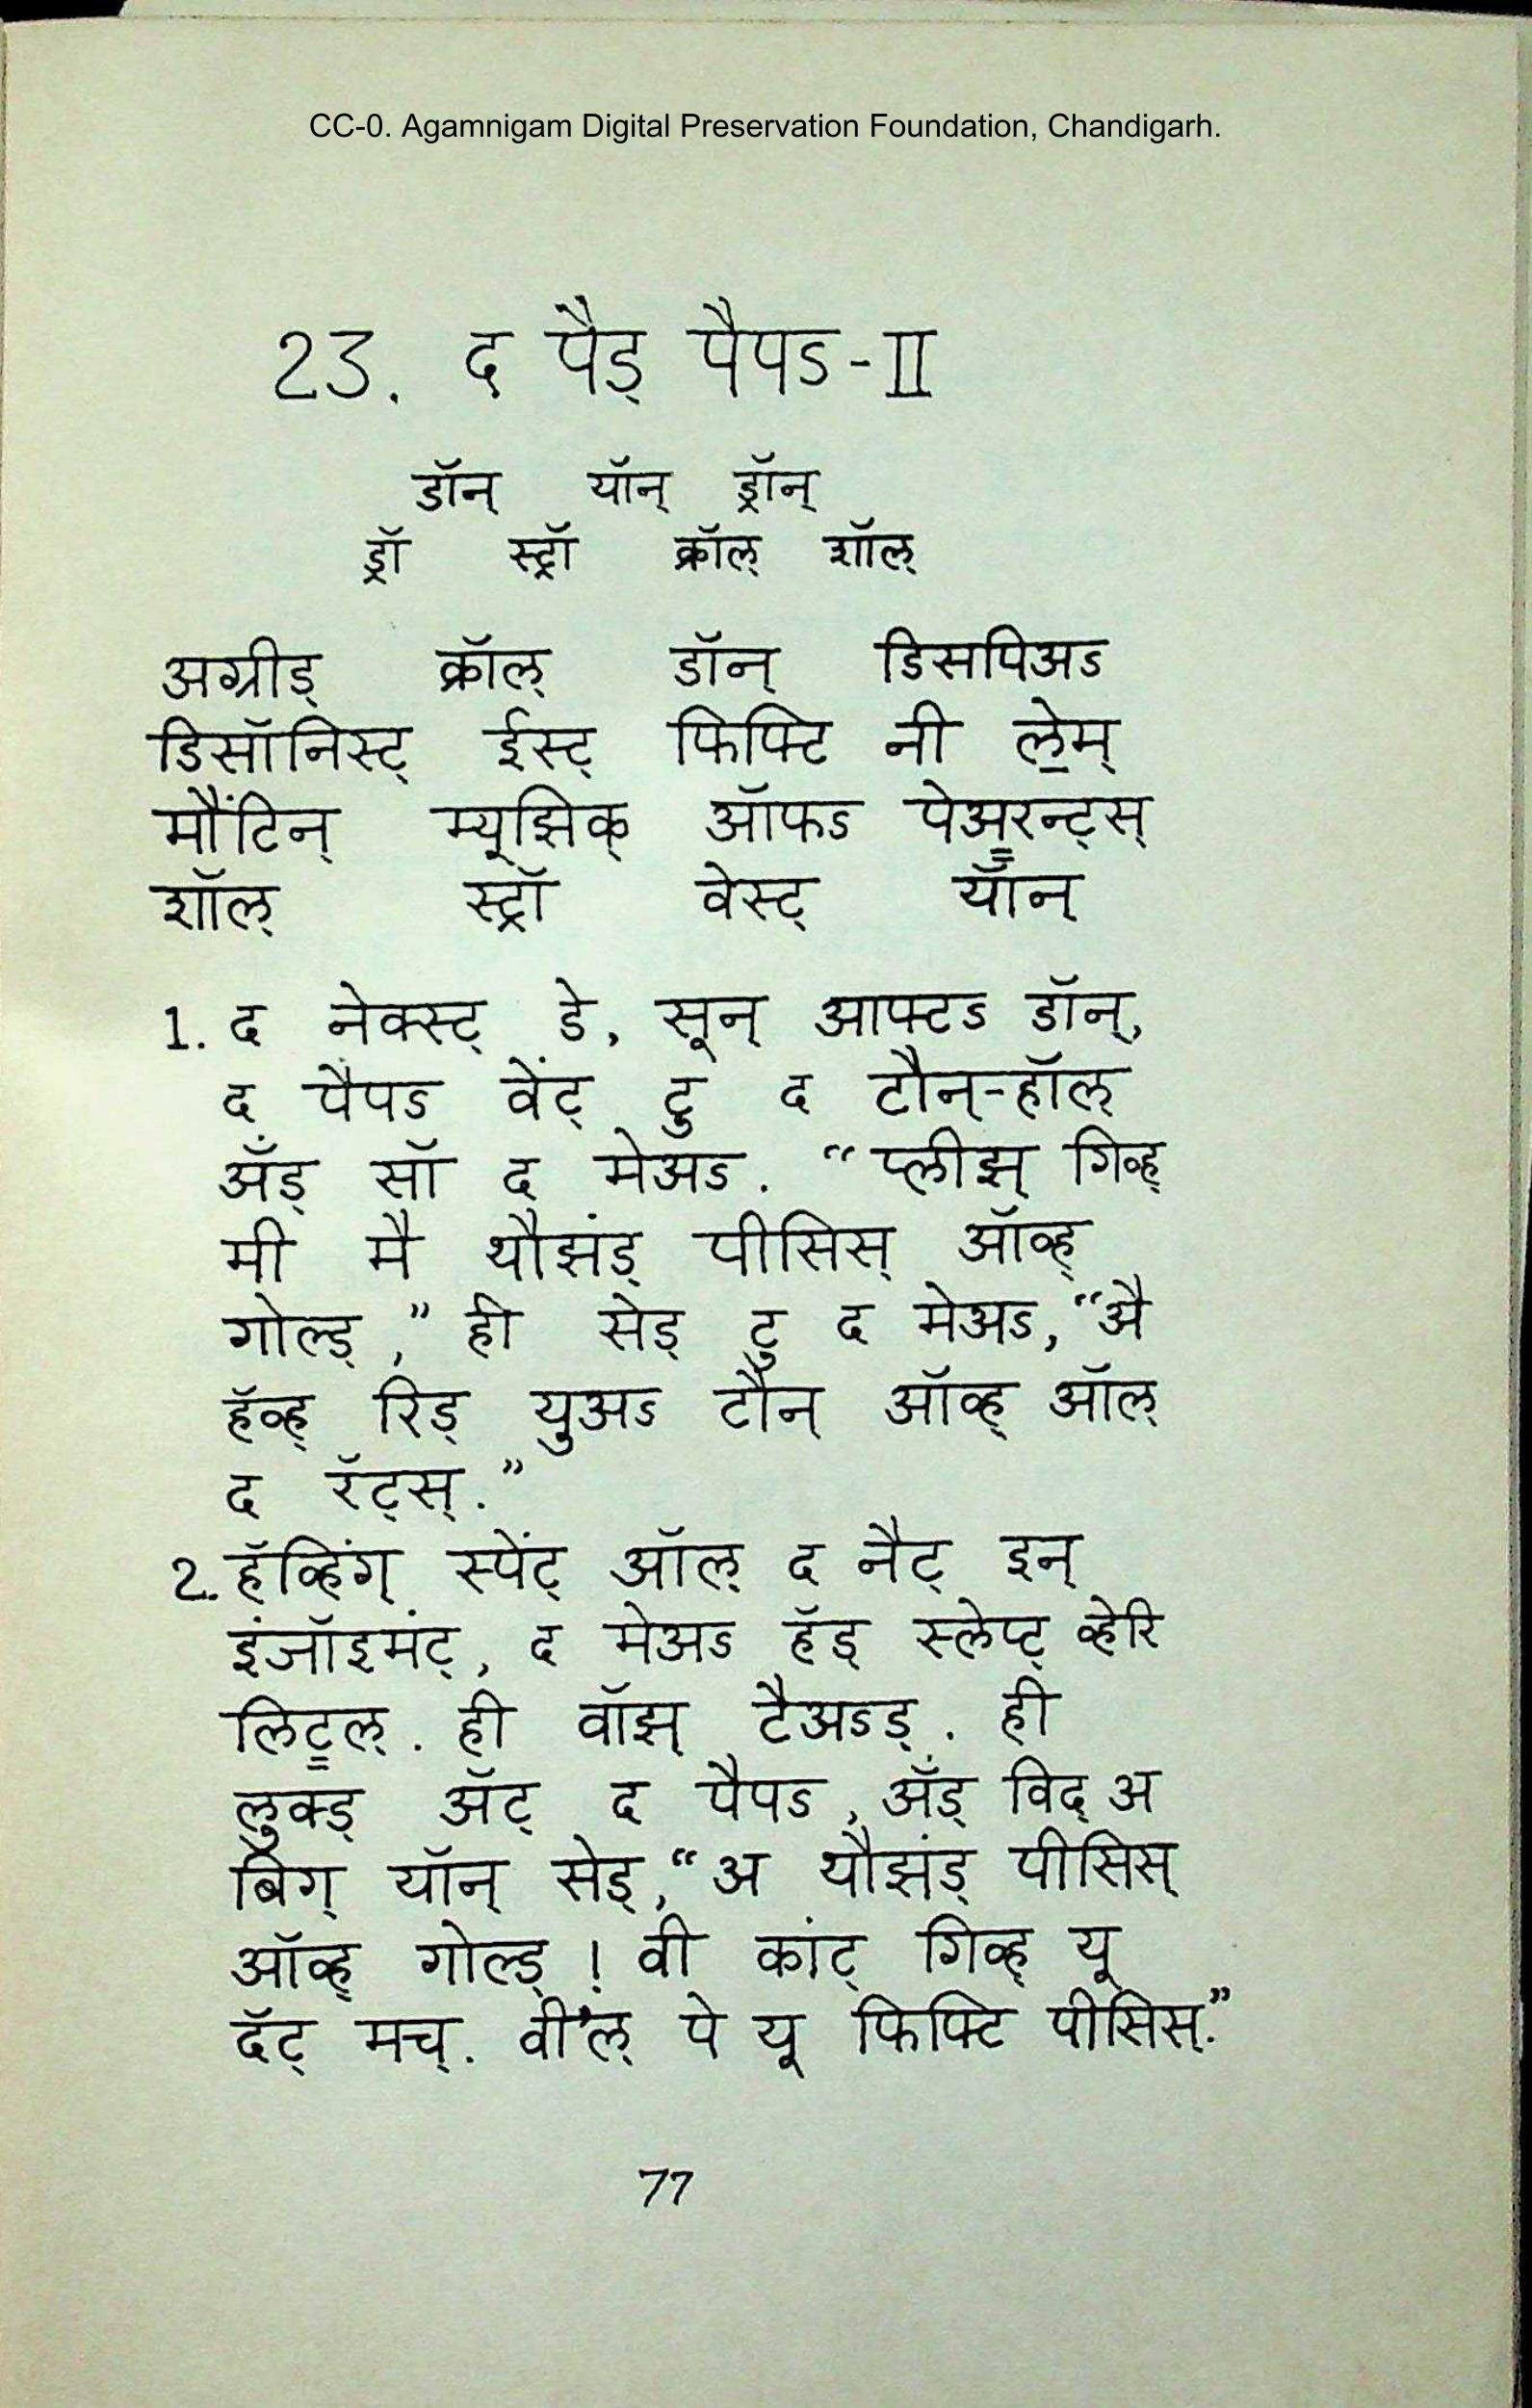 CC-0. Agamnigam Digital Preservation Foundation, Chandigarh.
23. द पैड् पैपऽ-II
डॉन् यॉन् ड्रॉन्
ड्रॉ स्ट्रॉ क्रॉल् शॉल्
अग्रीड् क्रॉल् डॉन् डिसपिअऽ
डिसॉनिस्ट् ईस्ट् फिफ्टि नी ले॒म्
मौंटिन् म्यूझिक् ऑफऽ पेअ॒रन्ट्स्
शॉल् स्ट्रॉ वेस्ट् यॉन्
1. द नेक्स्ट् डे, सून् आफ्टऽ डॉन्,
द पैपऽ वेंट् टु द टौन्-हॉल्
अँड् सॉ द मेअऽ. “प्लीझ् गिव्ह्
मी मै थौझंड् पीसिस् ऑव्ह्
गोल्ड्,” ही सेड् टु द मेअऽ, “अै
हॅव्ह् रिड् युअऽ टौन् ऑव्ह् ऑल्
द रॅट्स्.”
2. हॅव्हिंग् स्पेंट् ऑल् द नैट् इन्
इंजॉइमंट्, द मेअऽ हॅड् स्लेप्ट् व्हेरि
लिट्॒ल्. ही वॉझ् टैअऽड्. ही
लुक्ड् अॅट् द पैपऽ, अँड् विद् अ
बिग् यॉन् सेड्, “अ थौझंड् पीसिस्
ऑव्ह् गोल्ड्! वी कांट् गिव्ह् यू
दॅट् मच्. वी’ल् पे यू फिफ्टि पीसिस्.”
77